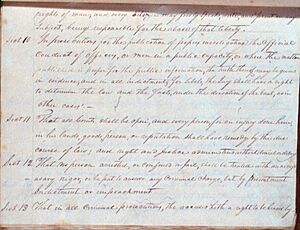 right of man, and every
subject, being responsible for the abuse of that liberty.
Sect 10 In prosecutions for the publication of papers investigating the Official
Conduct of officers, or men in a public capacity, or where the matter
published is proper for the public information, the truth thereof may be given
in evidence; and in all indictments for libels, the Jury shall have a right
to determine the law and the facts, under the direction of the court, as in
other cases.
Sect 11 That all Courts shall be open, and every person for an injury done him
in his lands, goods, person, or reputation shall have remedy by the due
course of law; and right and justice administered without
Sect 12 That no person arrested, or confined in jail, shall be treated with
rigor, or be put to answer any Criminal Charge, but by presentment
Indictment or impeachment
Sect 13 That in all Criminal prosecutions, the accused hath a right to be heard by